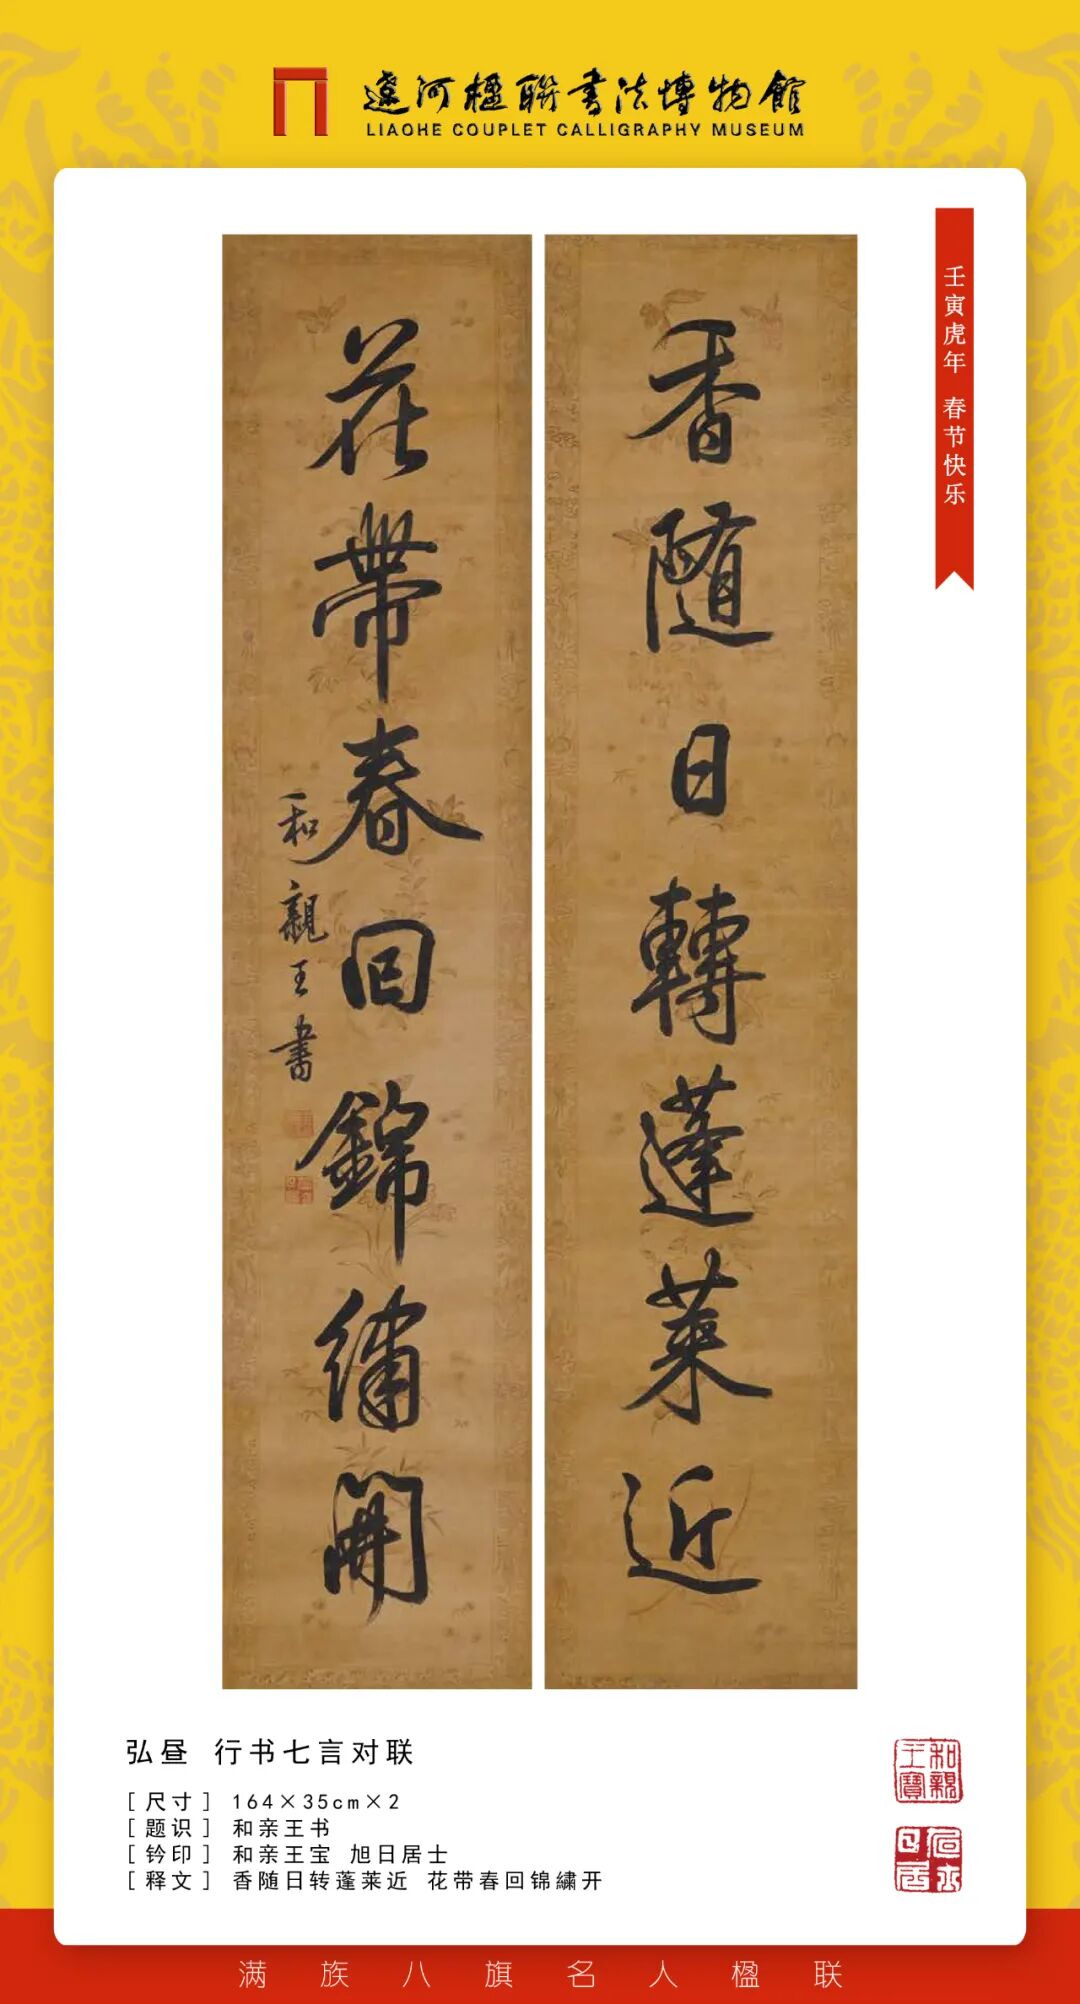 遼河楹聯書法博物館
LIAOHE COUPLET CALLIGRAPHY MUSEUM
壬寅虎年 春节快乐
香随日轉蓬萊近
花帶春回錦繡開
和親王書
弘昼 行书七言对联
[ 尺寸 ] 164×35cm×2
[ 题识 ] 和亲王书
[ 钤印 ] 和亲王宝 旭日居士
[ 释文 ] 香随日转蓬莱近 花带春回锦繡开
和親王寶
满族八旗名人楹联